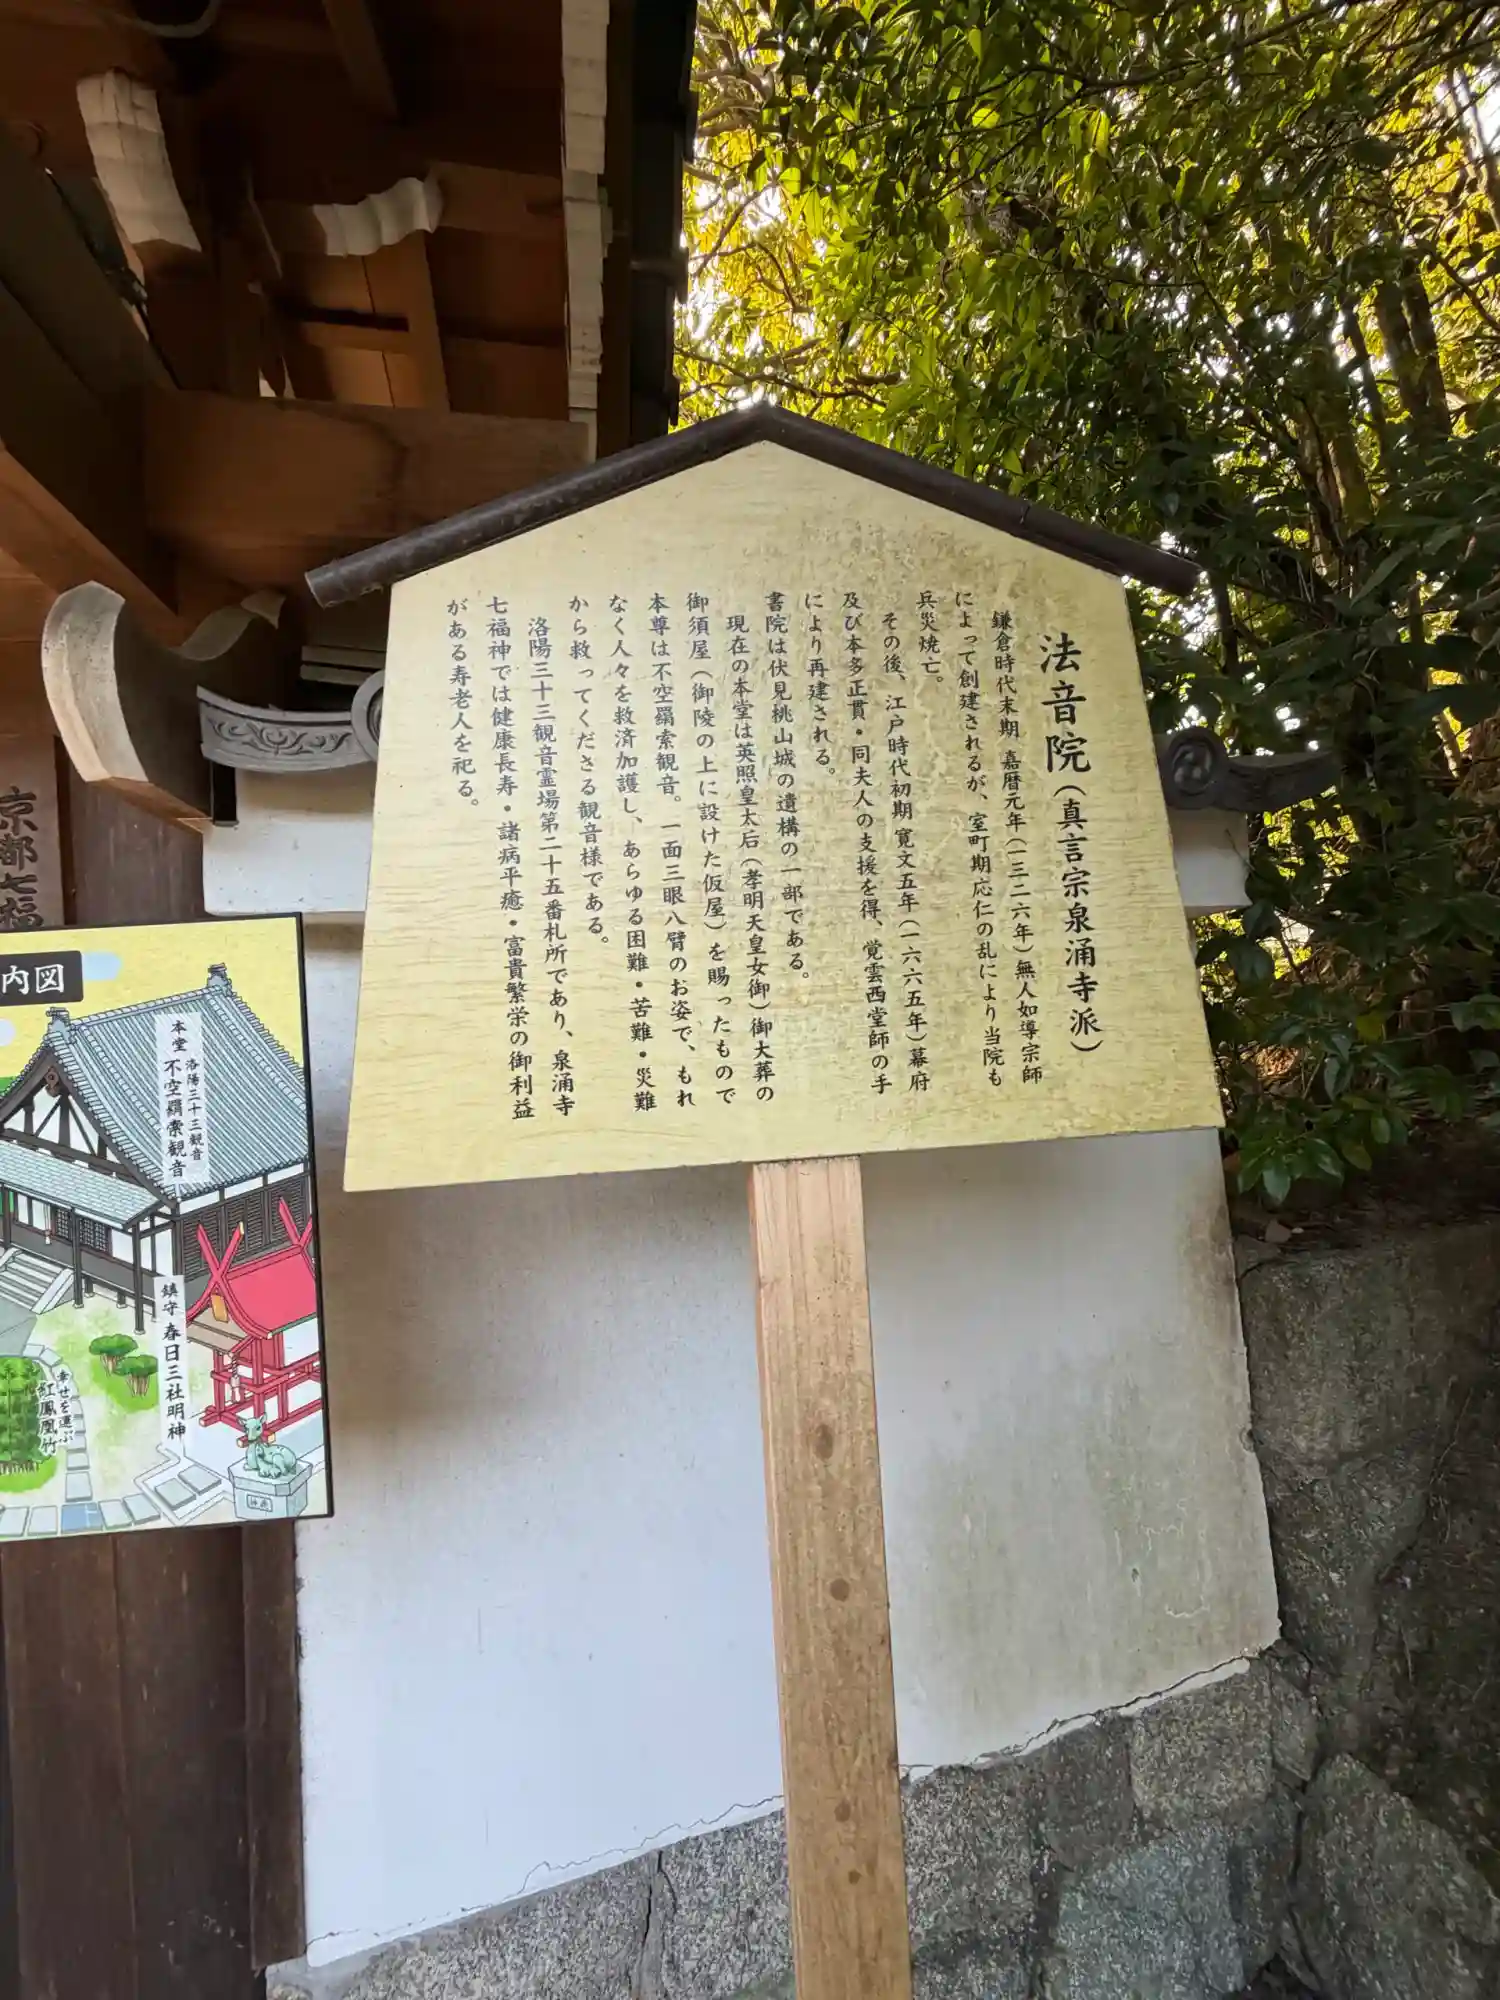 法音院（真言宗泉涌寺派）
鎌倉時代末期 嘉暦元年（一三二六年）無人如導宗師
によって創建されるが、室町期応仁の乱により当院も
兵災焼亡。
その後、江戸時代初期 寛文五年（一六六五年）幕府
及び本多正貫・同夫人の支援を得、覚雲西堂師の手
により再建される。
書院は伏見桃山城の遺構の一部である。
現在の本堂は英照皇太后（孝明天皇女御）御大葬の
御須屋（御陵の上に設けた仮屋）を賜ったもので
本尊は不空羂索観音。一面三眼八臂のお姿で、もれ
なく人々を救済加護し、あらゆる困難・苦難・災難
から救ってくださる観音様である。
洛陽三十三観音霊場第二十五番札所であり、泉涌寺
七福神では健康長寿・諸病平癒・富貴繁栄の御利益
がある寿老人を祀る。
京都七福
内図
洛陽三十三観音
本堂 不空羂索観音
鎮守 春日三社明神
幸せを運ぶ
紅鳳凰竹
神鹿